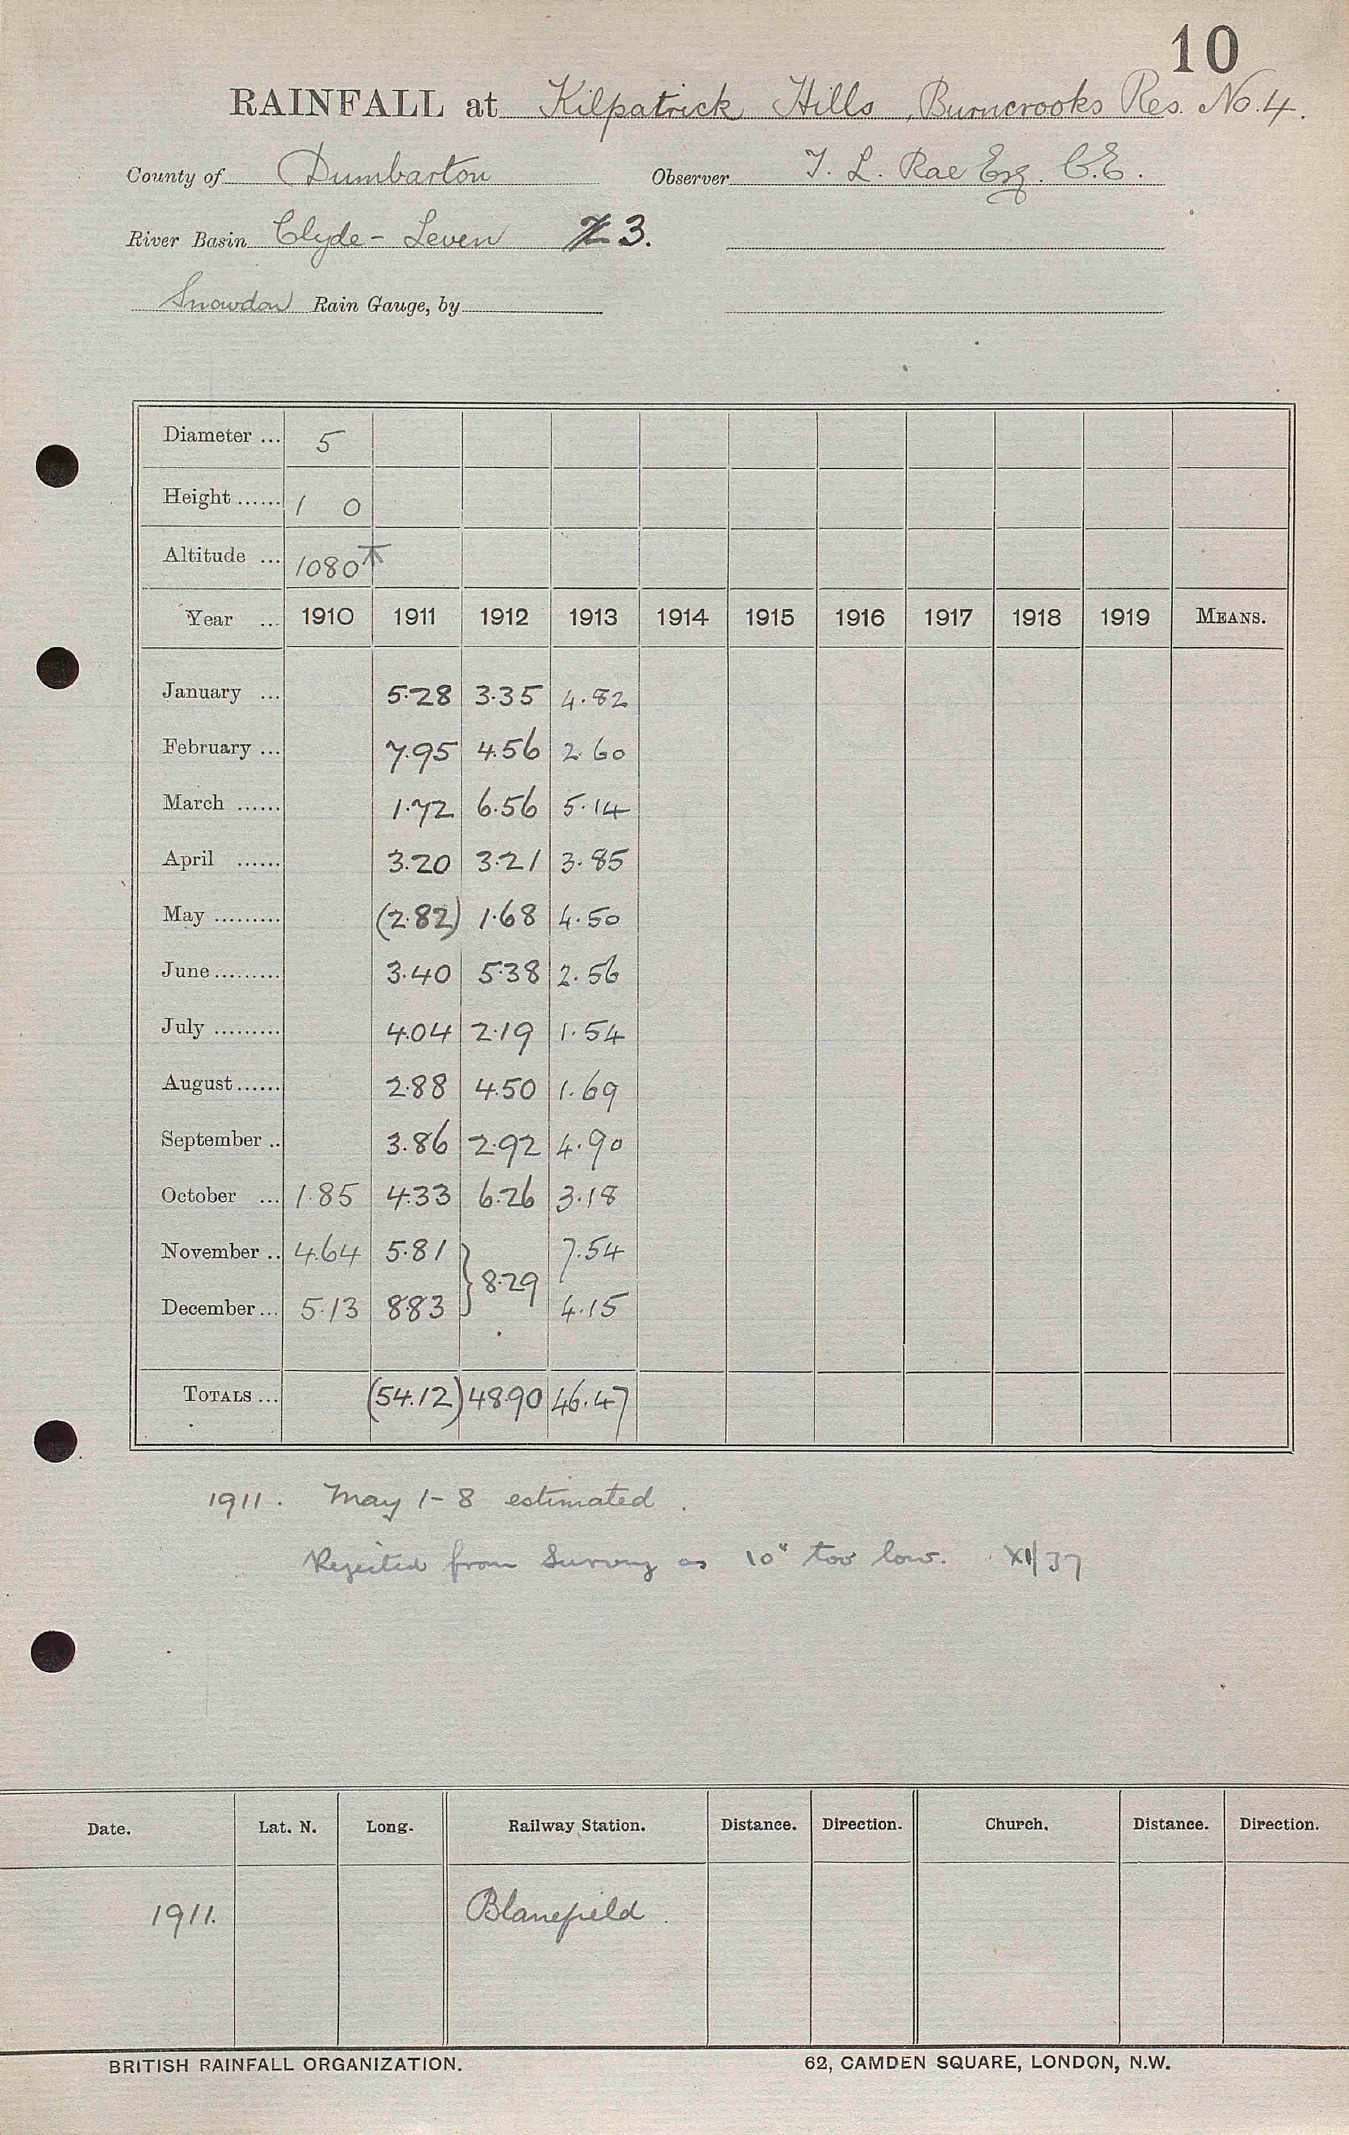 10
RAINFALL at Kilpatrick Hills, Burncrooks Res. No. 4.
County of Dumbarton Observer T. L. Rae Esq. C.E.
River Basin Clyde - Leven 3.
Snowdon Rain Gauge, by
Diameter ... 5
Height ...... 1 0
Altitude ... 1080
Year ... 1910 1911 1912 1913 1914 1915 1916 1917 1918 1919 MEANS.
January ... 5.28 3.35 4.82
February ... 7.95 4.56 2.60
March ...... 1.72 6.56 5.14
April ...... 3.20 3.21 3.85
May ......... (2.82) 1.68 4.50
June ......... 3.40 5.38 2.56
July ......... 4.04 2.19 1.54
August ...... 2.88 4.50 1.69
September .. 3.86 2.92 4.90
October ... 1.85 4.33 6.26 3.18
November .. 4.64 5.81 } 8.29 7.54
December ... 5.13 8.83 4.15
TOTALS ... (54.12) 48.90 46.47
1911. May 1-8 estimated.
Rejected from Survey as 10" too low. XI/37
Date. Lat. N. Long. Railway Station. Distance. Direction. Church. Distance. Direction.
1911. Blanefield.
BRITISH RAINFALL ORGANIZATION. 62, CAMDEN SQUARE, LONDON, N.W.